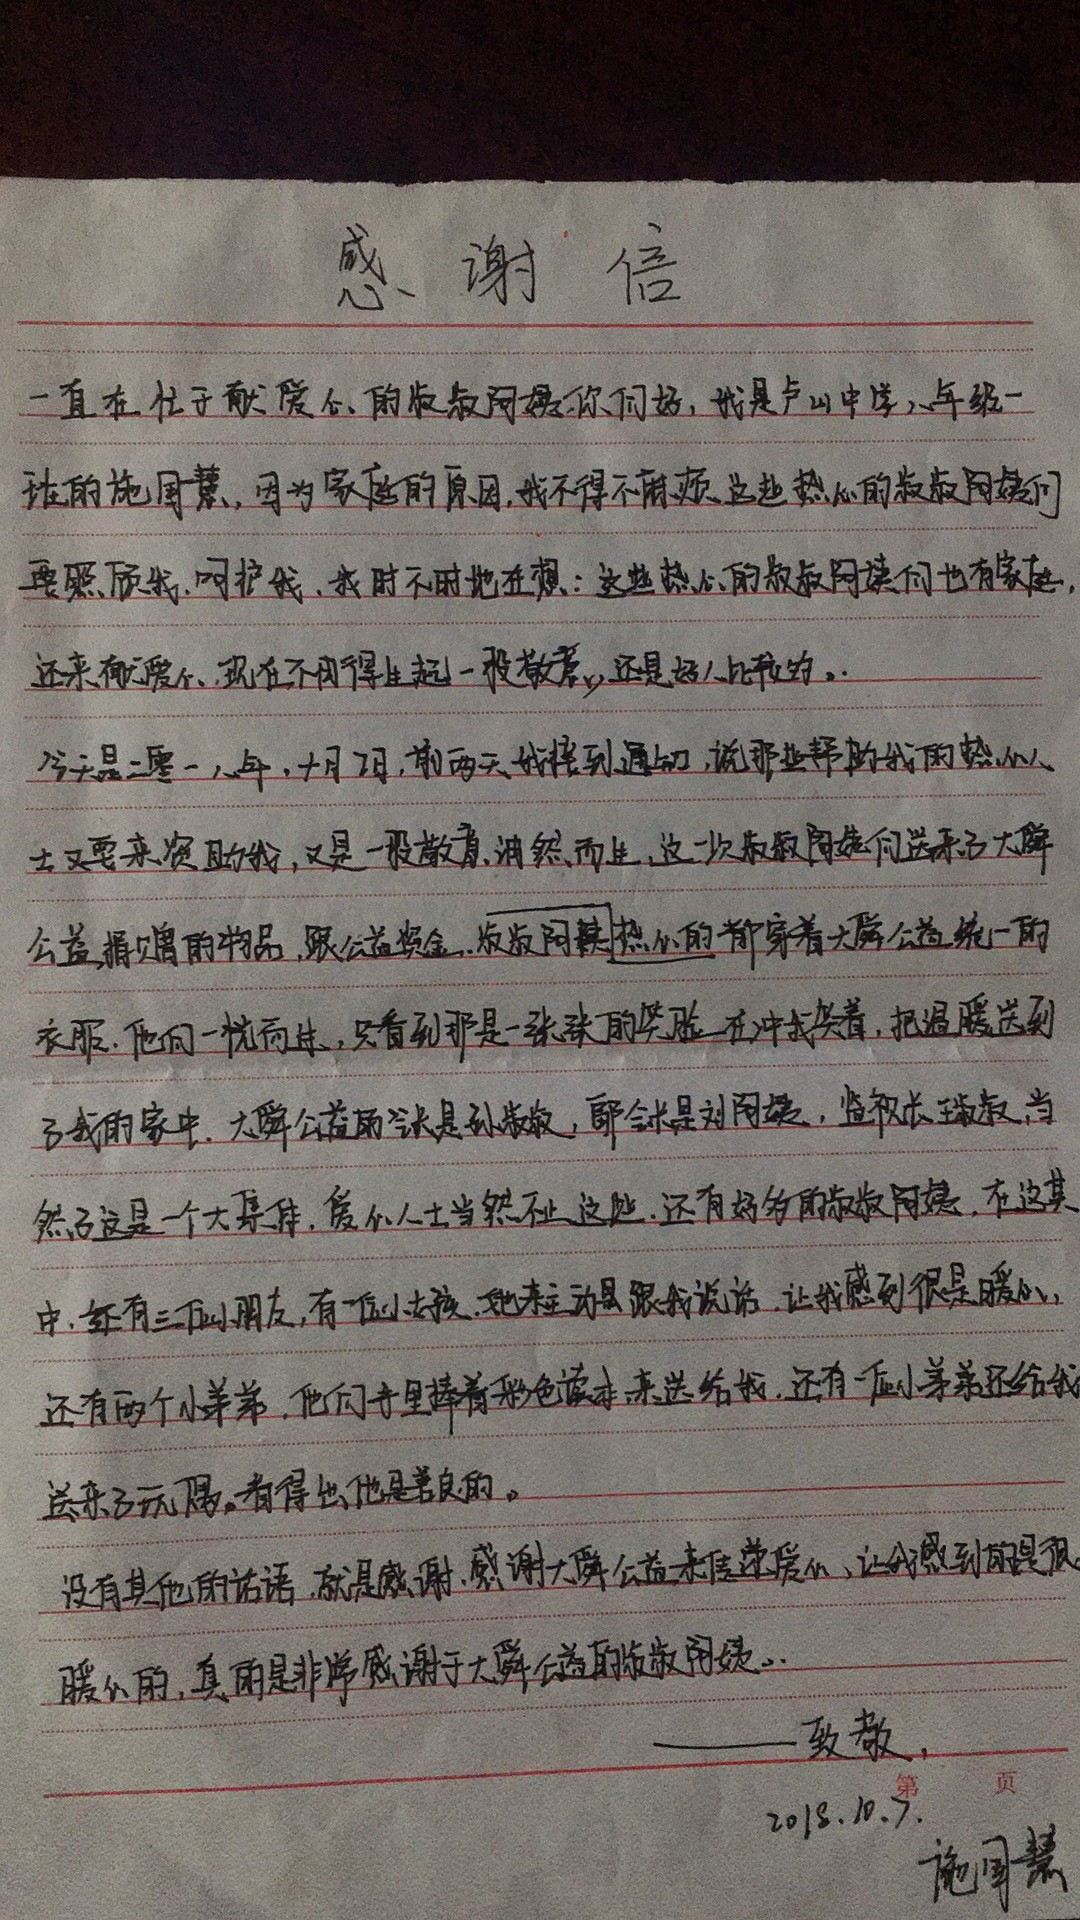 感谢信
一直在位于献爱心的叔叔阿姨你们好，我是卢山中学八年级一
班的施国慧，因为家庭的原因，我不得不麻烦这些热心的叔叔阿姨们
要照顾我，呵护我，我时不时地在想：这些热心的叔叔阿姨们也有家庭，
还来献爱心、现在不由得生起一股敬意，还是好人比较多。
今天是二零一八年，十月7日，前两天我接到通知，说那些帮助我的热心人
士又要来资助我，又是一股敬意油然而生，这一次叔叔阿姨们送来了大舜
公益捐赠的物品，跟公益资金、叔叔阿姨热心的都穿着大舜公益统一的
衣服、他们一忱而进，只看到那是一张张的笑脸在冲我笑着，把温暖送到
了我的家中、大舜公益的会长是孙叔叔，副会长是刘阿姨，监视长王叔叔，当
然了这是一个大集体，爱心人士当然不止这些、还有好多的叔叔阿姨，在这其
中，还有三位小朋友，有一位小女孩、她来主动跟我说话，让我感到很是暖心，
还有两个小弟弟，他们手里捧着彩色读本来送给我，还有一位小弟弟还给我
送来了玩偶。看得出他是善良的。
没有其他的话语，就是感谢、感谢大舜公益来传递爱心、让我感到的是很
暖心的，真的是非常感谢于大舜公益的叔叔阿姨..
——致敬，
第 页
2018.10.7.
施国慧